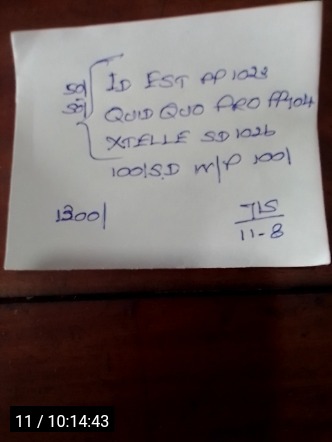 ID EST AP1023
QUID QUO PRO AP404
XTELLE SD1026
1001SD M/P 1001
1300/
715
11-8
11 / 10:14:43